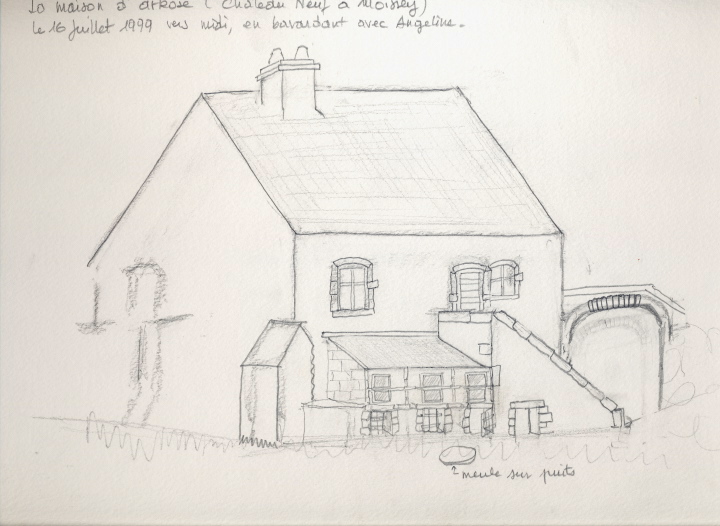 La maison d'arkose (Château Neuf à Moissey)
le 16 Juillet 1999 vers midi, en bavardant avec Angeline.
? meule sur puits